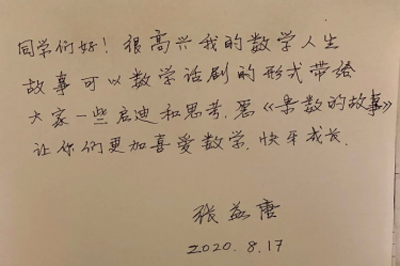 同学们好！很高兴我的数学人生
故事可以数学话剧的形式带给
大家一些启迪和思考.愿《素数的故事》
让你们更加喜爱数学.快乐成长.
张益唐
2020.8.17